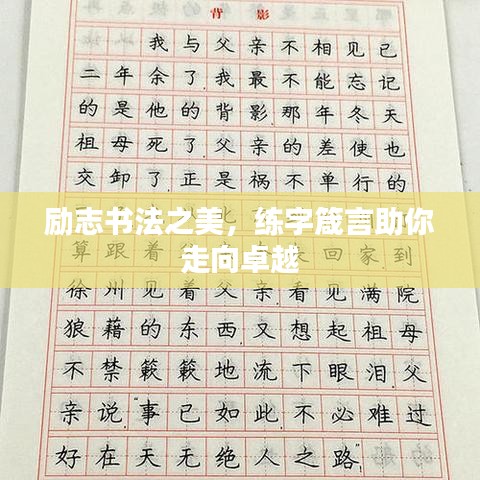 背影
我与父亲不相见已
二年余了我最不能忘记
的是他的背影那年冬天
祖母死了父亲的差使也
交卸了正是祸不单行的
励志书法之美，练字箴言助你
走向卓越
算跟着 回家到
徐州见着父亲看见满院
狼藉的东西又想起祖母
不禁簌簌地流下眼泪父
亲说“事已如此不必难过
好在天无绝人之路”